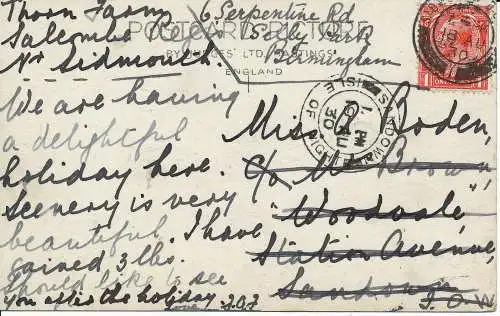 Thorn Farm
Salcombe Regis
Nr Sidmouth
We are having
a delightful
holiday here.
Scenery is very
beautiful. I have
gained 3 lbs.
Should like to see
you after the holiday
Love
6 Serpentine Rd
Selly Park
Birmingham
POSTCARD
LTD, HASTINGS
ENGLAND
SANDOWN
ISLE OF WIGHT
30
Miss Boden,
c/o Mrs Brown,
"Woodvale",
Station Avenue,
Sandown
I.O.W.